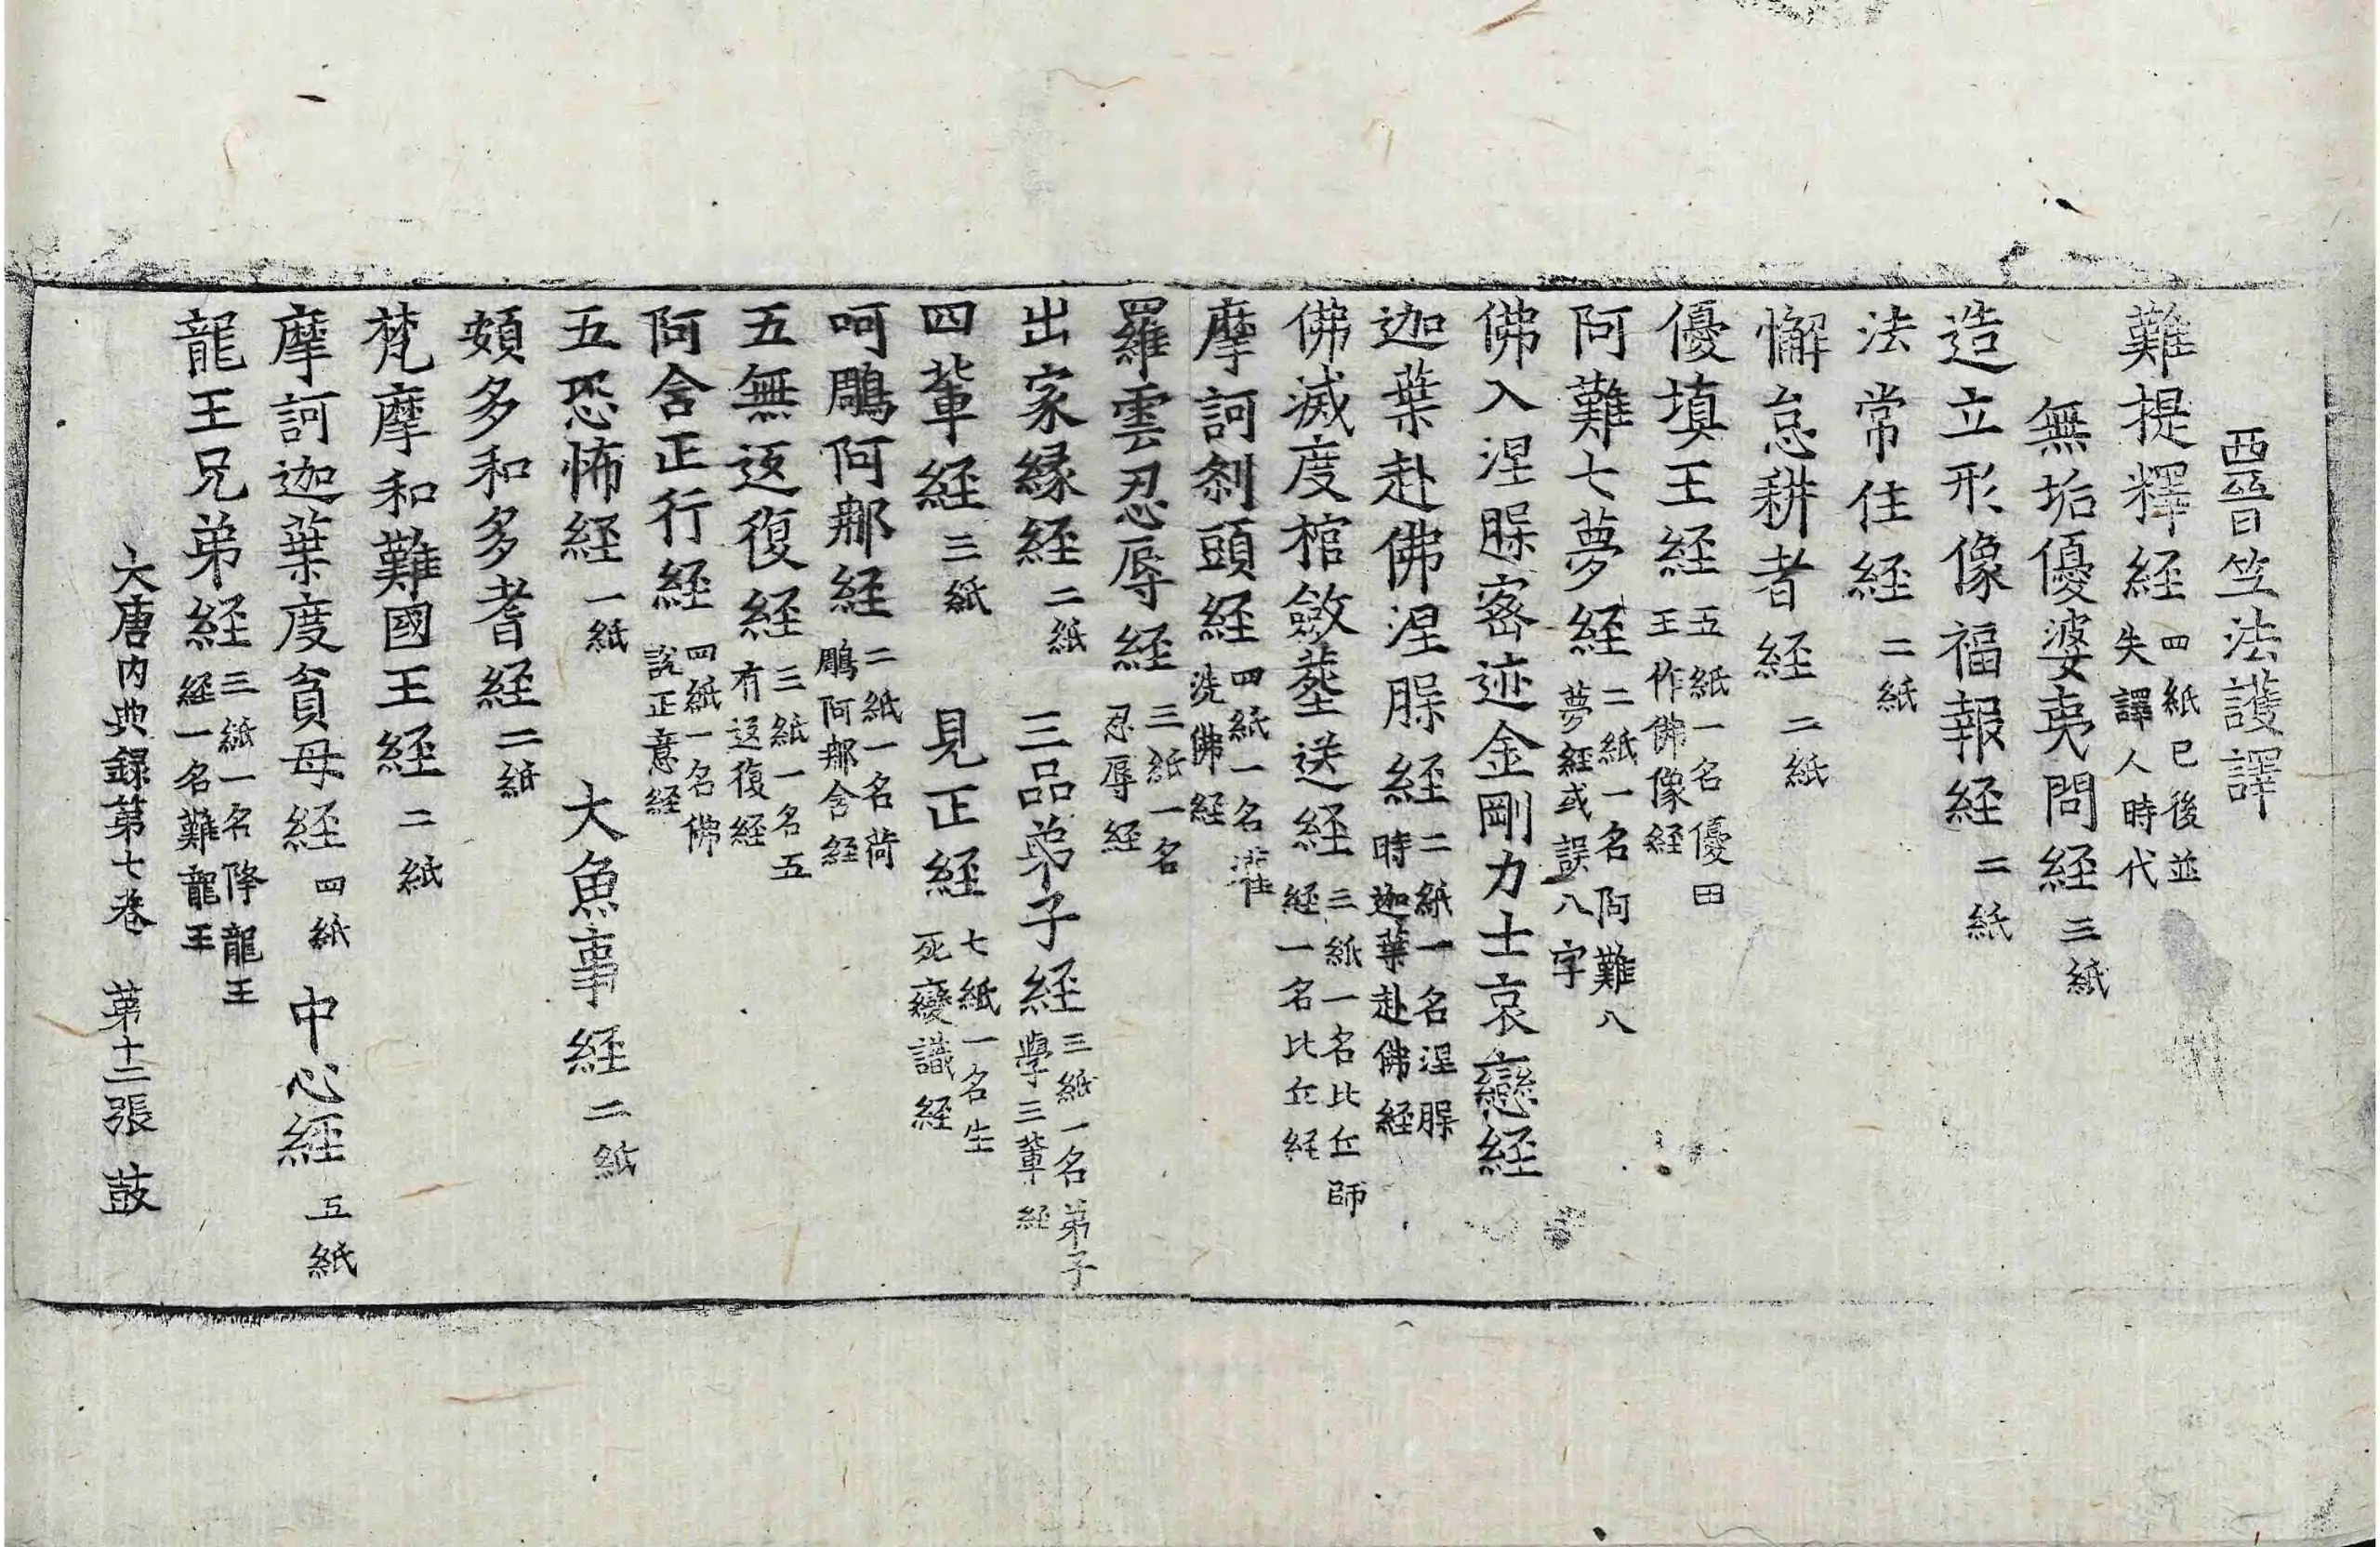 西晉竺法護譯
難提釋経四紙已後並失譯人時代
無垢優婆夷問経三紙
造立形像福報経二紙
法常住経二紙
懈怠耕者経二紙
優填王経五紙一名優田王作佛像経
阿難七夢経二紙一名阿難八夢経或誤八字
佛入涅槃密迹金剛力士哀戀経
迦葉赴佛涅槃経二紙一名涅槃時迦葉赴佛経
佛滅度棺斂葬送経三紙一名比丘師経一名比丘経
摩訶剎頭経四紙一名灌洗佛経
羅雲忍辱経三紙一名忍辱経
出家縁経二紙 三品弟子経三紙一名弟子學三輩経
四輩経三紙 見正経七紙一名生死變識経
呵鵰阿那経二紙一名荷鵰阿那含経
五無返復経三紙一名五有返復経
阿含正行経四紙一名佛說正意経
五恐怖経一紙 大魚事経二紙
頞多和多耆経二紙
梵摩和難國王経二紙
摩訶迦葉度貧母経四紙 中心経五紙
龍王兄弟経三紙一名降龍王経一名難龍王
大唐内典録第七巻 第十二張 鼓